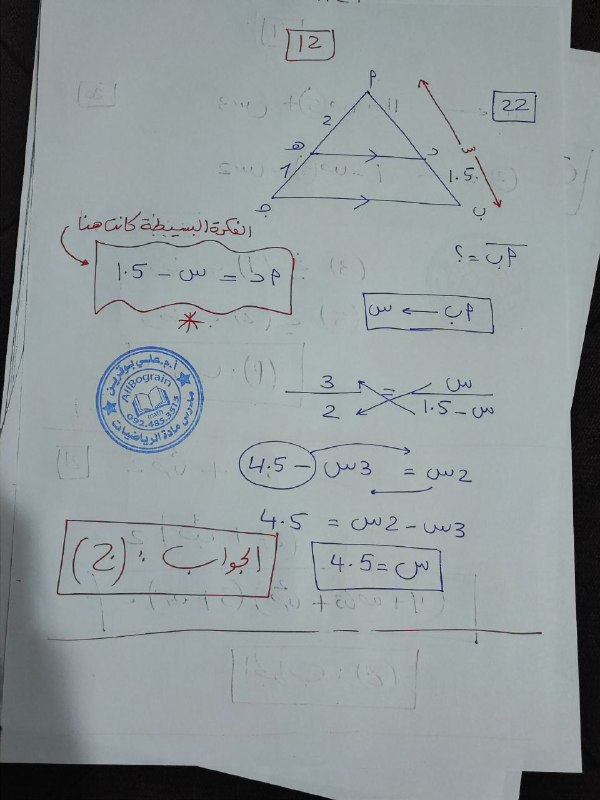 12
22
م
2
11
هـ
د
س
1
1.5
جـ
ب
الفكرة البسيطة كانت هنا
م د = س - 1.5
م ب = ؟
م ب ← س
س / س - 1.5 = 3 / 2
2س = 3س - 4.5
3س - 2س = 4.5
س = 4.5
الجواب : (ج)
أ.م.علي بوقرين
AliBograin
main
092.485.3513
مدرس مادة الرياضيات